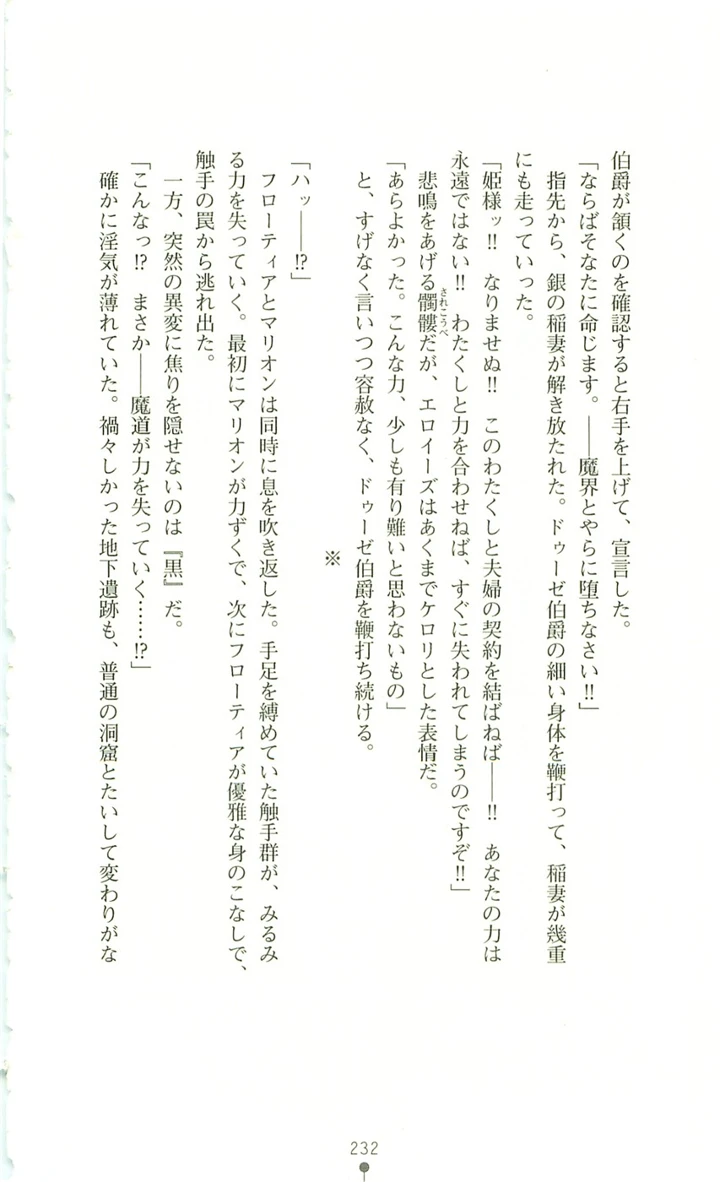 伯爵が頷くのを確認すると右手を上げて、宣言した。
「ならばそなたに命じます。――魔界とやらに堕ちなさい!!」
指先から、銀の稲妻が解き放たれた。ドゥーゼ伯爵の細い身体を鞭打って、稲妻が幾重
にも走っていった。
「姫様ッ!!　なりませぬ!!　このわたくしと夫婦の契約を結ばねば――!!　あなたの力は
永遠ではない!!　わたくしと力を合わせねば、すぐに失われてしまうのですぞ!!」
悲鳴をあげる髑髏だが、エロイーズはあくまでケロリとした表情だ。
されこうべ
「あらよかった。こんな力、少しも有り難いと思わないもの」
と、すげなく言いつつ容赦なく、ドゥーゼ伯爵を鞭打ち続ける。
※
「ハッ――!?」
フローティアとマリオンは同時に息を吹き返した。手足を縛めていた触手群が、みるみ
る力を失っていく。最初にマリオンが力ずくで、次にフローティアが優雅な身のこなしで、
触手の罠から逃れ出た。
一方、突然の異変に焦りを隠せないのは『黒』だ。
「こんなっ!?　まさか――魔道が力を失っていく……!?」
確かに淫気が薄れていた。禍々しかった地下遺跡も、普通の洞窟とたいして変わりがな
232